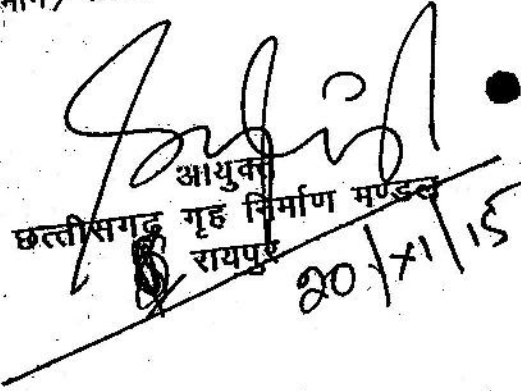 आयुक्त
छत्तीसगढ़ गृह निर्माण मण्डल
रायपुर
20/XI/15